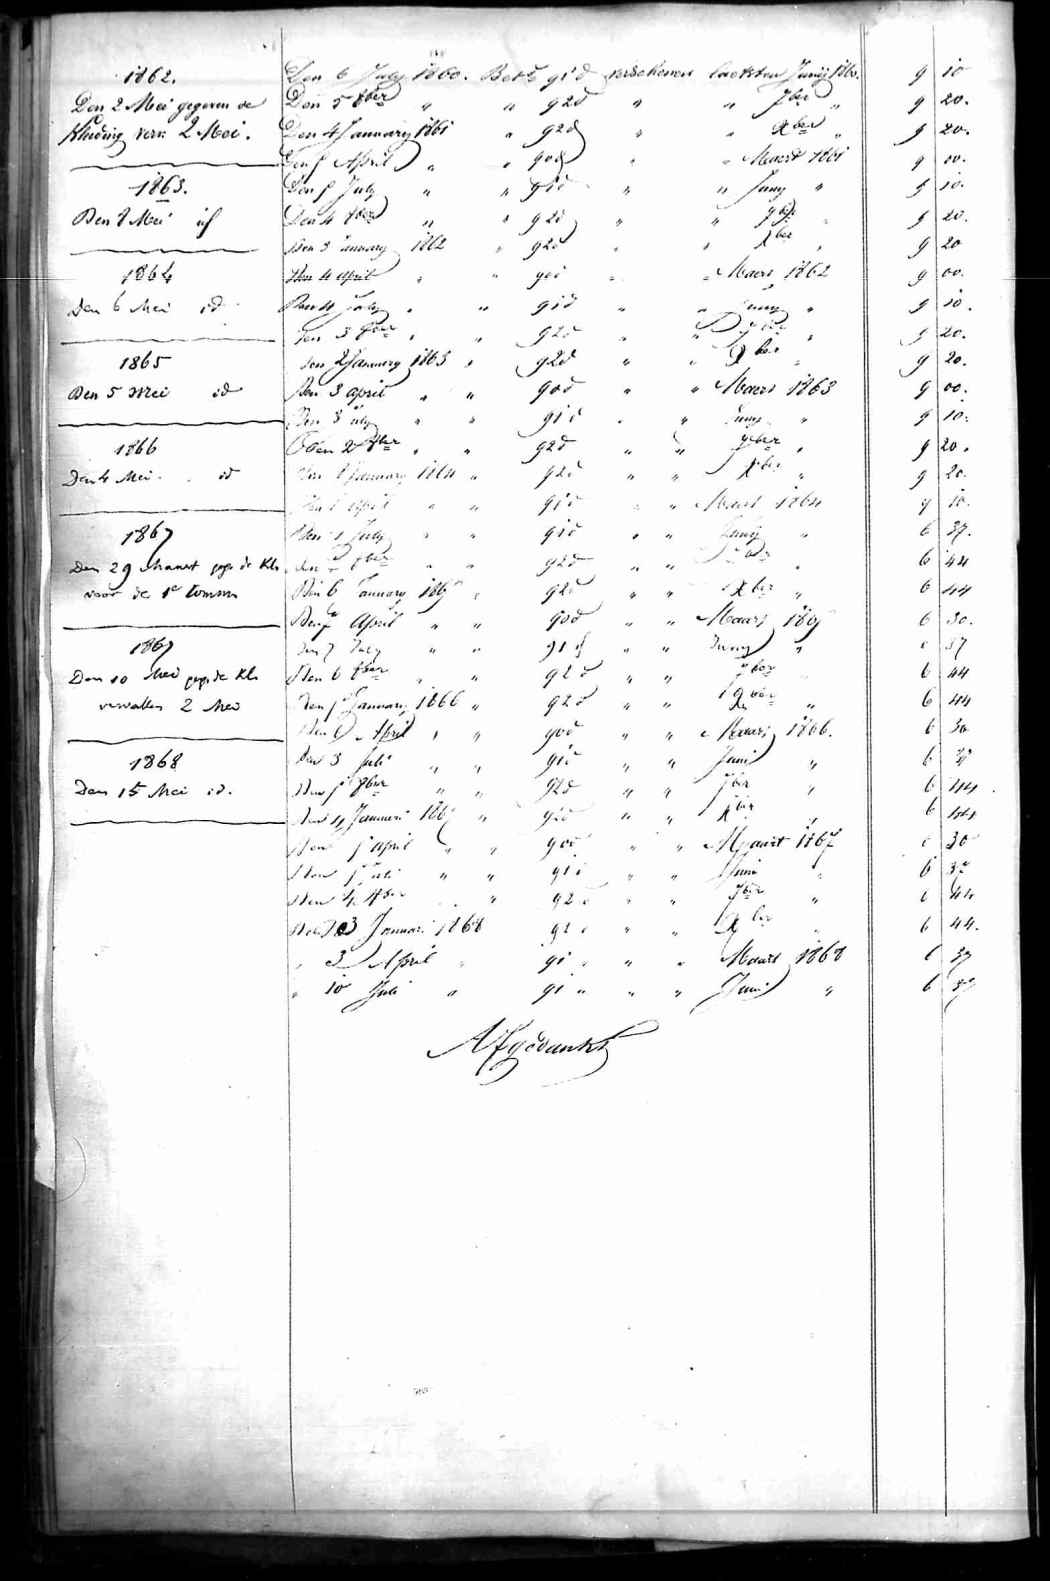 1862.
Den 2 Mei gegeven de
Kleding verv. 2 Mei.
1863.
Den 8 Mei id
1864
Den 6 Mei id
1865
Den 5 Mei id
1866
Den 4 Mei id
1867
Den 29 Maart gege de Kle
voor de 1e
1867
Den 10 Mei gege de Kle
vervallen 2 Mei
1868
Den 15 Mei id.
Den 6 July 1860. Bet. 91 d verschenen laetsten Junij 1860. 9 10
Den 5 8ber " " 92 d " " 7ber " 9 20.
Den 4 January 1861 " 92 d " " Xber " 9 20.
Den 5 April " " 90 d " " Maert 1861 9 00.
Den 5 July " " 91 d " " Juny " 9 10.
Den 4 8ber " " 92 d " " 7ber " 9 20.
Den 3 January 1862 " 92 d " " Xber " 9 20
Den 4 april " " 90 d " " Maers 1862 9 00.
Den 4 July " " 91 d " " Juny " 9 10.
Den 3 8ber " " 92 d " " 7ber " 9 20.
Den 2 January 1863 " 92 d " " Xber " 9 20.
Den 3 april " " 90 d " " Maers 1863 9 00.
Den 3 July " " 91 d " " Juny " 9 10.
Den 2 8ber " " 92 d " " 7ber " 9 20.
Den 1 January 1864 " 92 d " " Xber " 9 20.
Den 1 April " " 91 d " " Maers 1864 9 10.
Den 1 July " " 91 d " " Junij " 6 37.
Den 8ber " " 92 d " " 7ber " 6 44
Den 6 January 1865 " 92 d " " Xber " 6 44
Den 7 April " " 90 d " " Maers 1865 6 30.
Den 7 July " " 91 d " " Juny " 6 37
Den 6 8ber " " 92 d " " 7ber " 6 44
Den 5 January 1866 " 92 d " " Xber " 6 44
Den 6 April " " 90 d " " Maers 1866. 6 30
Den 3 Juli " " 91 d " " Juni " 6 37
Den 5 8ber " " 92 d " " 7ber " 6 44.
Den 4 Januari 1867 " 92 d " " Xber " 6 44
Den 5 april " " 90 d " " Maart 1867 6 30
Den 5 Juli " " 91 d " " Juni " 6 37
Den 4 8ber " " 92 d " " 7ber " 6 44
Den 3 Januari 1868 92 d " " Xber " 6 44.
" 3 April " 91 " " " Maart 1868 6 37
" 10 Juli " 91 " " " Juni " 6 37
Afgedankt